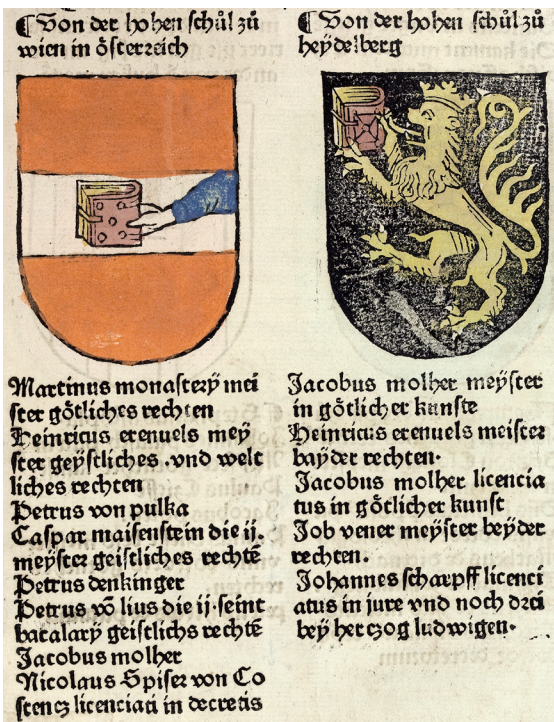 ¶ Von der hohen schůl zů
wien in österreich
Martinus monasterÿ mei
ster götliches rechten
Heinricus erenuels meÿ
ster geÿstliches vnd welt
liches rechten
Petrus von pulka
Caspar maisenstein die ij.
meÿster geistliches rechtē
Petrus denkinger
Petrus vō lius die ij. seint
bacalarÿ geistlichs rechtē
Jacobus molher
Nicolaus Spiser von Co
stencz licenciati in decretis
¶ Von der hohen schůl zů
heÿdelberg
Jacobus molher meÿster
in götlicher kunste
Heinricus erenuels meister
baÿder rechten.
Jacobus molher licencia
tus in götlicher kunst
Job vener meÿster beÿder
rechten.
Johannes schaepff licenci
atus in jure vnd noch drei
beÿ herczog ludwigen.